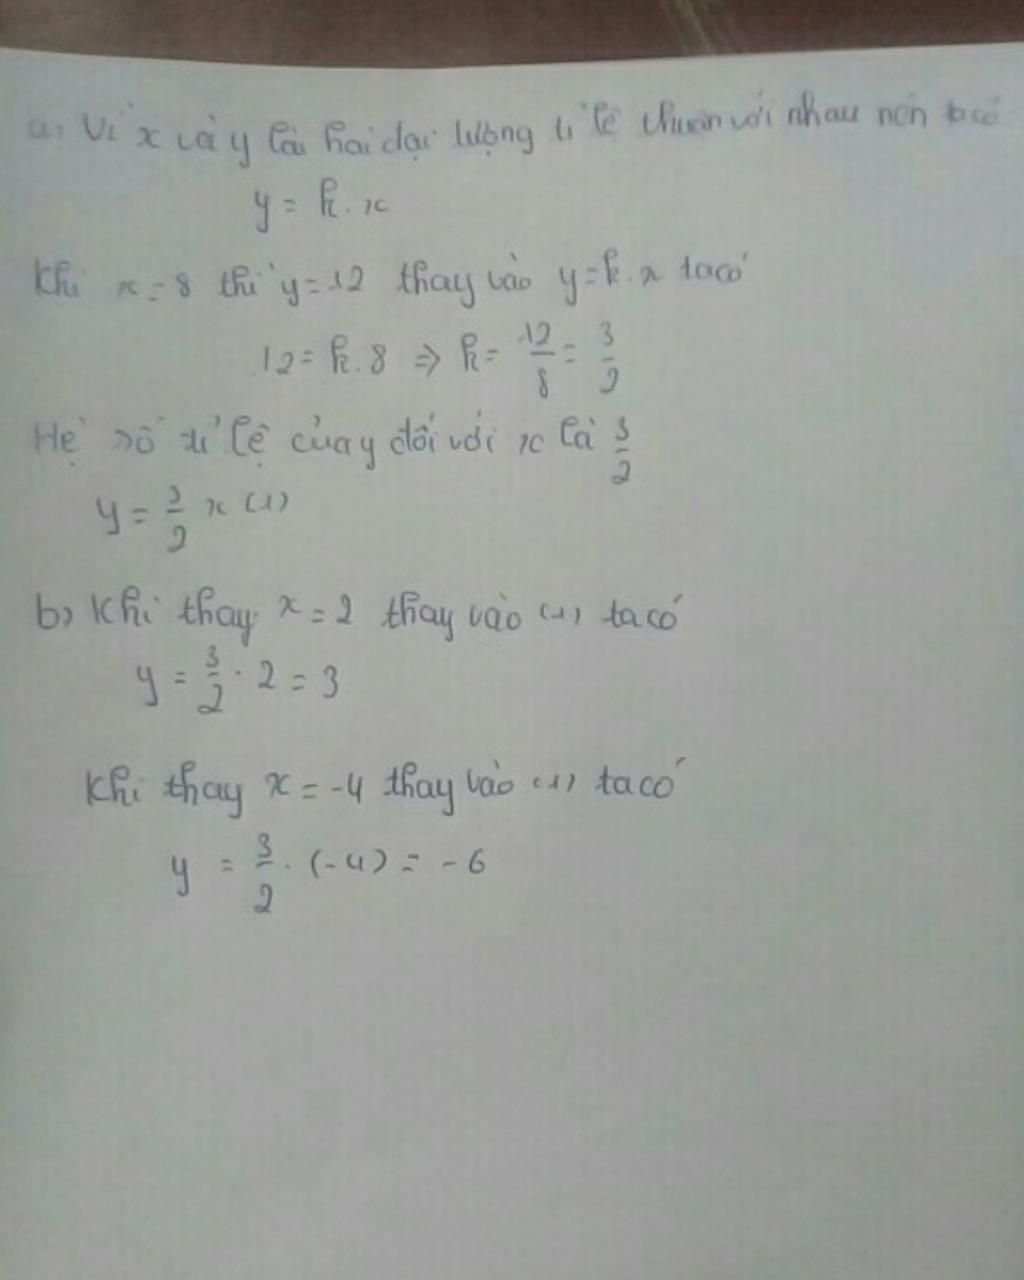 a, Vì x và y là hai đại lượng tỉ lệ thuận với nhau nên ta có
y = k. x
Khi x = 8 thì y = 12 thay vào y = k. x ta có
12 = k. 8 => k = 12/8 = 3/2
Hệ số tỉ lệ của y đối với x là 3/2
y = 3/2 x (1)
b) Khi thay x = 2 thay vào (1) ta có
y = 3/2 . 2 = 3
Khi thay x = -4 thay vào (1) ta có
y = 3/2 . (-4) = -6